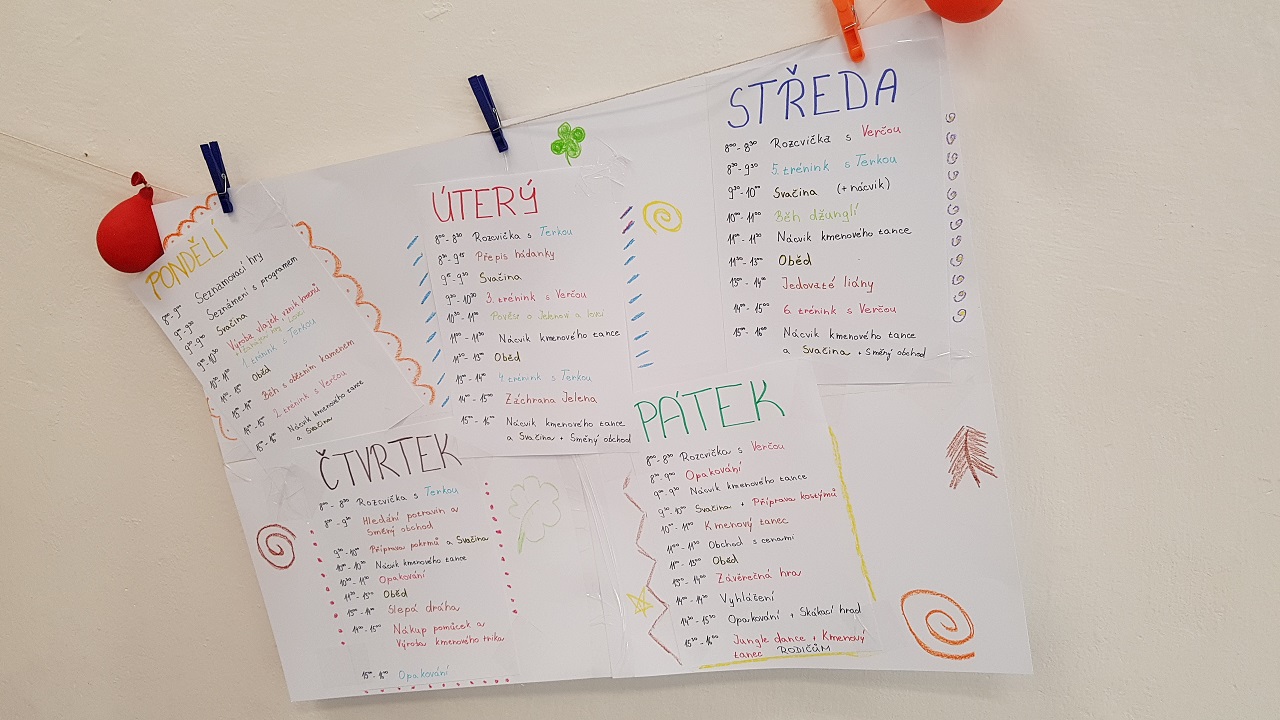 PONDĚLÍ
Seznamovací hry
Seznámení s programem
Svačina
Výroba vlajek vznik kmenů
1. trénink s Terkou
Oběd
Běh s obětním kamenem
2. trénink s Verčou
Nácvik kmenového tance
a Svačina
ÚTERÝ
8⁰⁰- 8³⁰ Rozcvička s Terkou
8³⁰- 9¹⁵ Přepis hádanky
9¹⁵- 9³⁰ Svačina
9³⁰- 10³⁰ 3. trénink s Verčou
10³⁰- 11⁰⁰ Pověst o Jelenovi a
11⁰⁰- 11³⁰ Nácvik kmenového tance
Oběd
13⁰⁰- 14⁰⁰ 4. trénink s Terkou
Záchrana Jelena
15⁰⁰- 16⁰⁰ Nácvik kmenového tance
a Svačina + Směný obchod
STŘEDA
8⁰⁰- 8³⁰ Rozcvička s Verčou
8³⁰- 9³⁰ 5. trénink s Terkou
9³⁰- 10⁰⁰ Svačina (+ nácvik)
10⁰⁰- 11⁰⁰ Běh džunglí
11⁰⁰- 11³⁰ Nácvik kmenového tance
11³⁰- 13⁰⁰ Oběd
13⁰⁰- 14⁰⁰ Jedovaté liány
14⁰⁰- 15⁰⁰ 6. trénink s Verčou
15⁰⁰- 16⁰⁰ Nácvik kmenového tance
a Svačina + Směný obchod
ČTVRTEK
8⁰⁰- 8³⁰ Rozcvička s Terkou
Hledání potravin a
Směný obchod
Příprava pokrmů a Svačina
Nácvik kmenového tance
Opakování
11³⁰- 13⁰⁰ Oběd
13⁰⁰- 14⁰⁰ Slepá dráha
14⁰⁰- 15⁰⁰ Nákup pomůcek a
Výroba kmenového trika
15⁰⁰- 16⁰⁰ Opakování
PÁTEK
8⁰⁰- 8³⁰ Rozcvička s Verčou
Opakování
Nácvik kmenového tance
Svačina + Příprava kostýmů
Kmenový tanec
Obchod s cenami
Oběd
Závěrečná hra
Vyhlášení
Opakování + Skákací hrad
15³⁰- 16⁰⁰ Jungle dance + Kmenový
tanec RODIČŮM